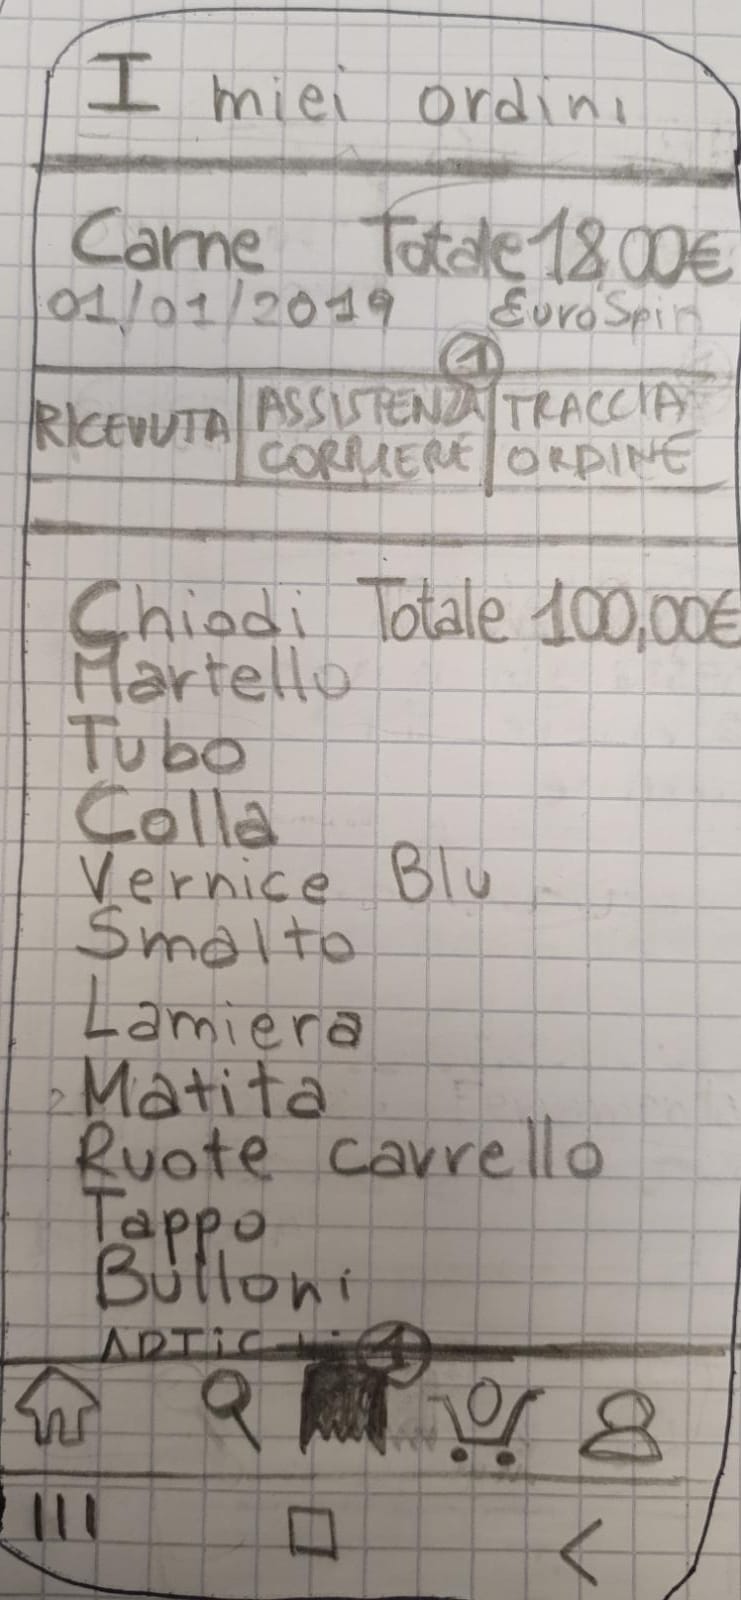 I miei ordini
Carne Totale 18,00€
01/01/2019 EuroSpin
1
RICEVUTA ASSISTENZA CORRIERE TRACCIA ORDINE
Chiodi Totale 100,00€
Martello
Tubo
Colla
Vernice Blu
Smalto
Lamiera
Matita
Ruote carrello
Tappo
Bulloni
1